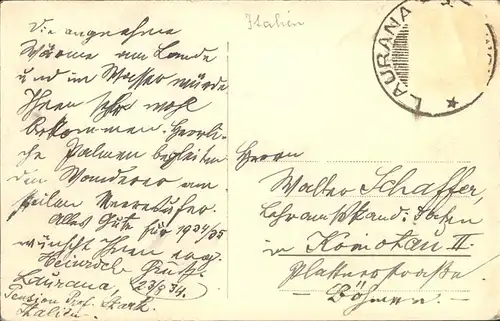 Die angenehme
Wärme am Lande
und im Wasser würde
Ihnen sehr wohl
bekommen. Herrli-
che Palmen begleiten
den Wanderer am
steilen Meeresufer.
Alles Gute für 1934/35
wünscht Ihnen erg.
Heinrich
Laurana, 23/8 34.
Pension Prof. Stark.
Italien.
Italien
LAURANA
Herrn
Walter Schaffer,
Lehramtskand.
in Komotau II.
Plattnerstraße
– Böhmen. –